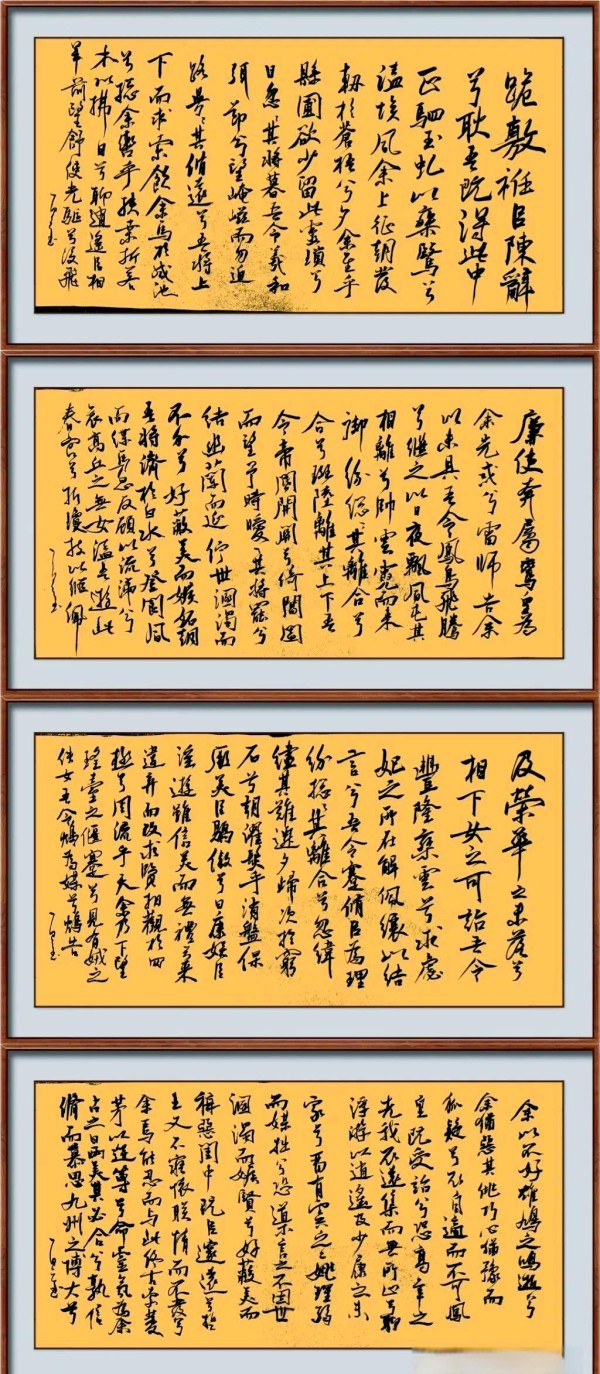 跪敷衽以陳辭
兮耿吾既得此中
正駟玉虬以乘鷖兮
溘埃風余上征朝發
軔於蒼梧兮夕余至乎
縣圃欲少留此靈瑣兮
日忽忽其將暮吾令羲和
弭節兮望崦嵫而勿迫
路曼曼其脩遠兮吾將上
下而求索飲余馬於咸池
兮總余轡乎扶桑折若
木以拂日兮聊逍遙以相
羊前望舒使先驅兮後飛
廉使奔屬鸞皇為
余先戒兮雷師告余
以未具吾令鳳鳥飛騰
兮繼之以日夜飄風屯其
相離兮帥雲霓而來
御紛總總其離合兮
合兮斑陸離其上下吾
令帝閽開關兮倚閶闔
而望予時曖曖其將罷兮
結幽蘭而延佇世溷濁而
不分兮好蔽美而嫉妒朝
吾將濟於白水兮登閬風
而緤馬忽反顧以流涕兮
哀高丘之無女溘吾遊此
春宮兮折瓊枝以繼佩
及榮華之未落兮
相下女之可詒吾令
豐隆乘雲兮求宓
妃之所在解佩纕以結
言兮吾令蹇脩以為理
紛總總其離合兮忽緯
繣其難遷夕歸次於窮
石兮朝濯髮乎洧盤保
厥美以驕傲兮日康娛以
淫遊雖信美而無禮兮來
違棄而改求覽相觀於四
極兮周流乎天余乃下望
瑤臺之偃蹇兮見有娀之
佚女吾令鴆為媒兮鴆告
余以不好雄鳩之鳴逝兮
余猶惡其佻巧心猶豫而
狐疑兮欲自適而不可鳳
皇既受詒兮恐高辛之
先我欲遠集而無所止兮聊
浮游以逍遙及少康之未
家兮留有虞之二姚理弱
而媒拙兮恐導言之不固世
溷濁而嫉賢兮好蔽美而
稱惡閨中既以邃遠兮哲
王又不寤懷朕情而不發兮
余焉能忍而與此終古索藑
茅以筳篿兮命靈氛為余
占之曰兩美其必合兮孰信
脩而慕思九州之博大兮